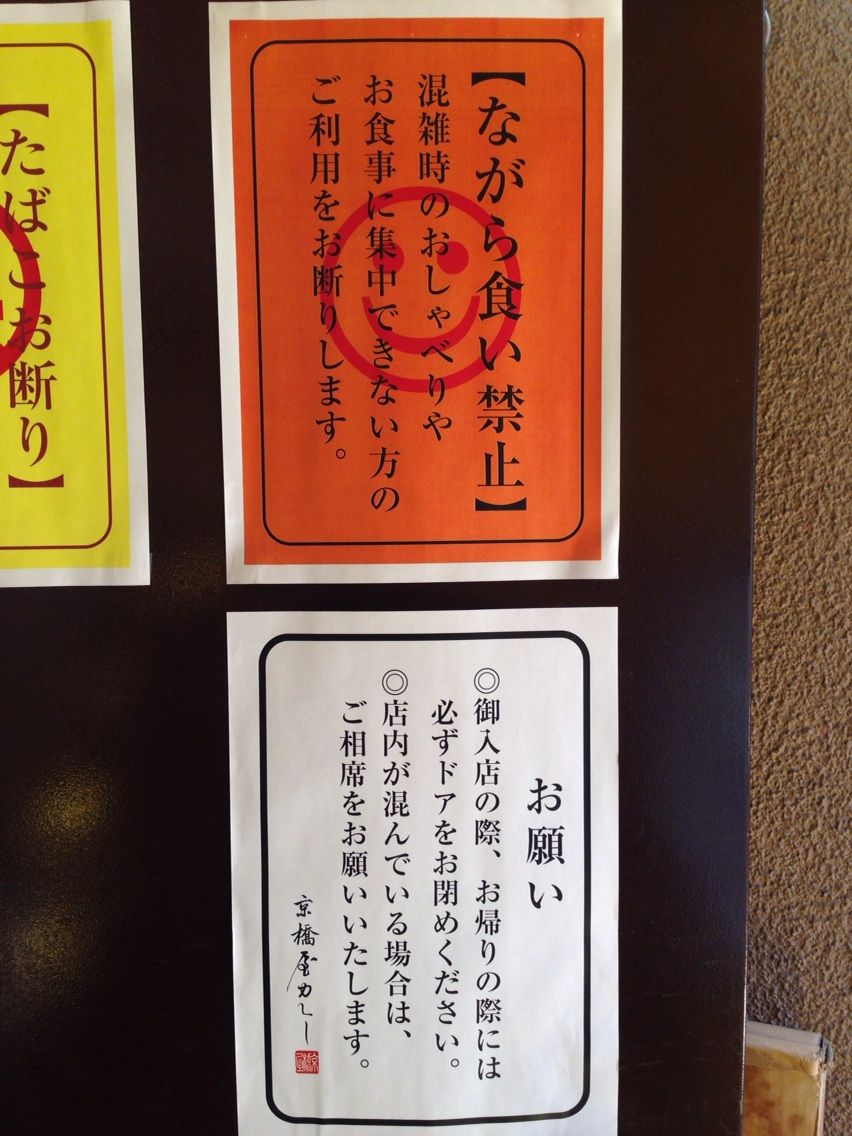 【ながら食い禁止】
混雑時のおしゃべりや
お食事に集中できない方の
ご利用をお断りします。
【たばこお断り】
お願い
◎御入店の際、お帰りの際には
必ずドアをお閉めください。
◎店内が混んでいる場合は、
ご相席をお願いいたします。
京橋屋カレー